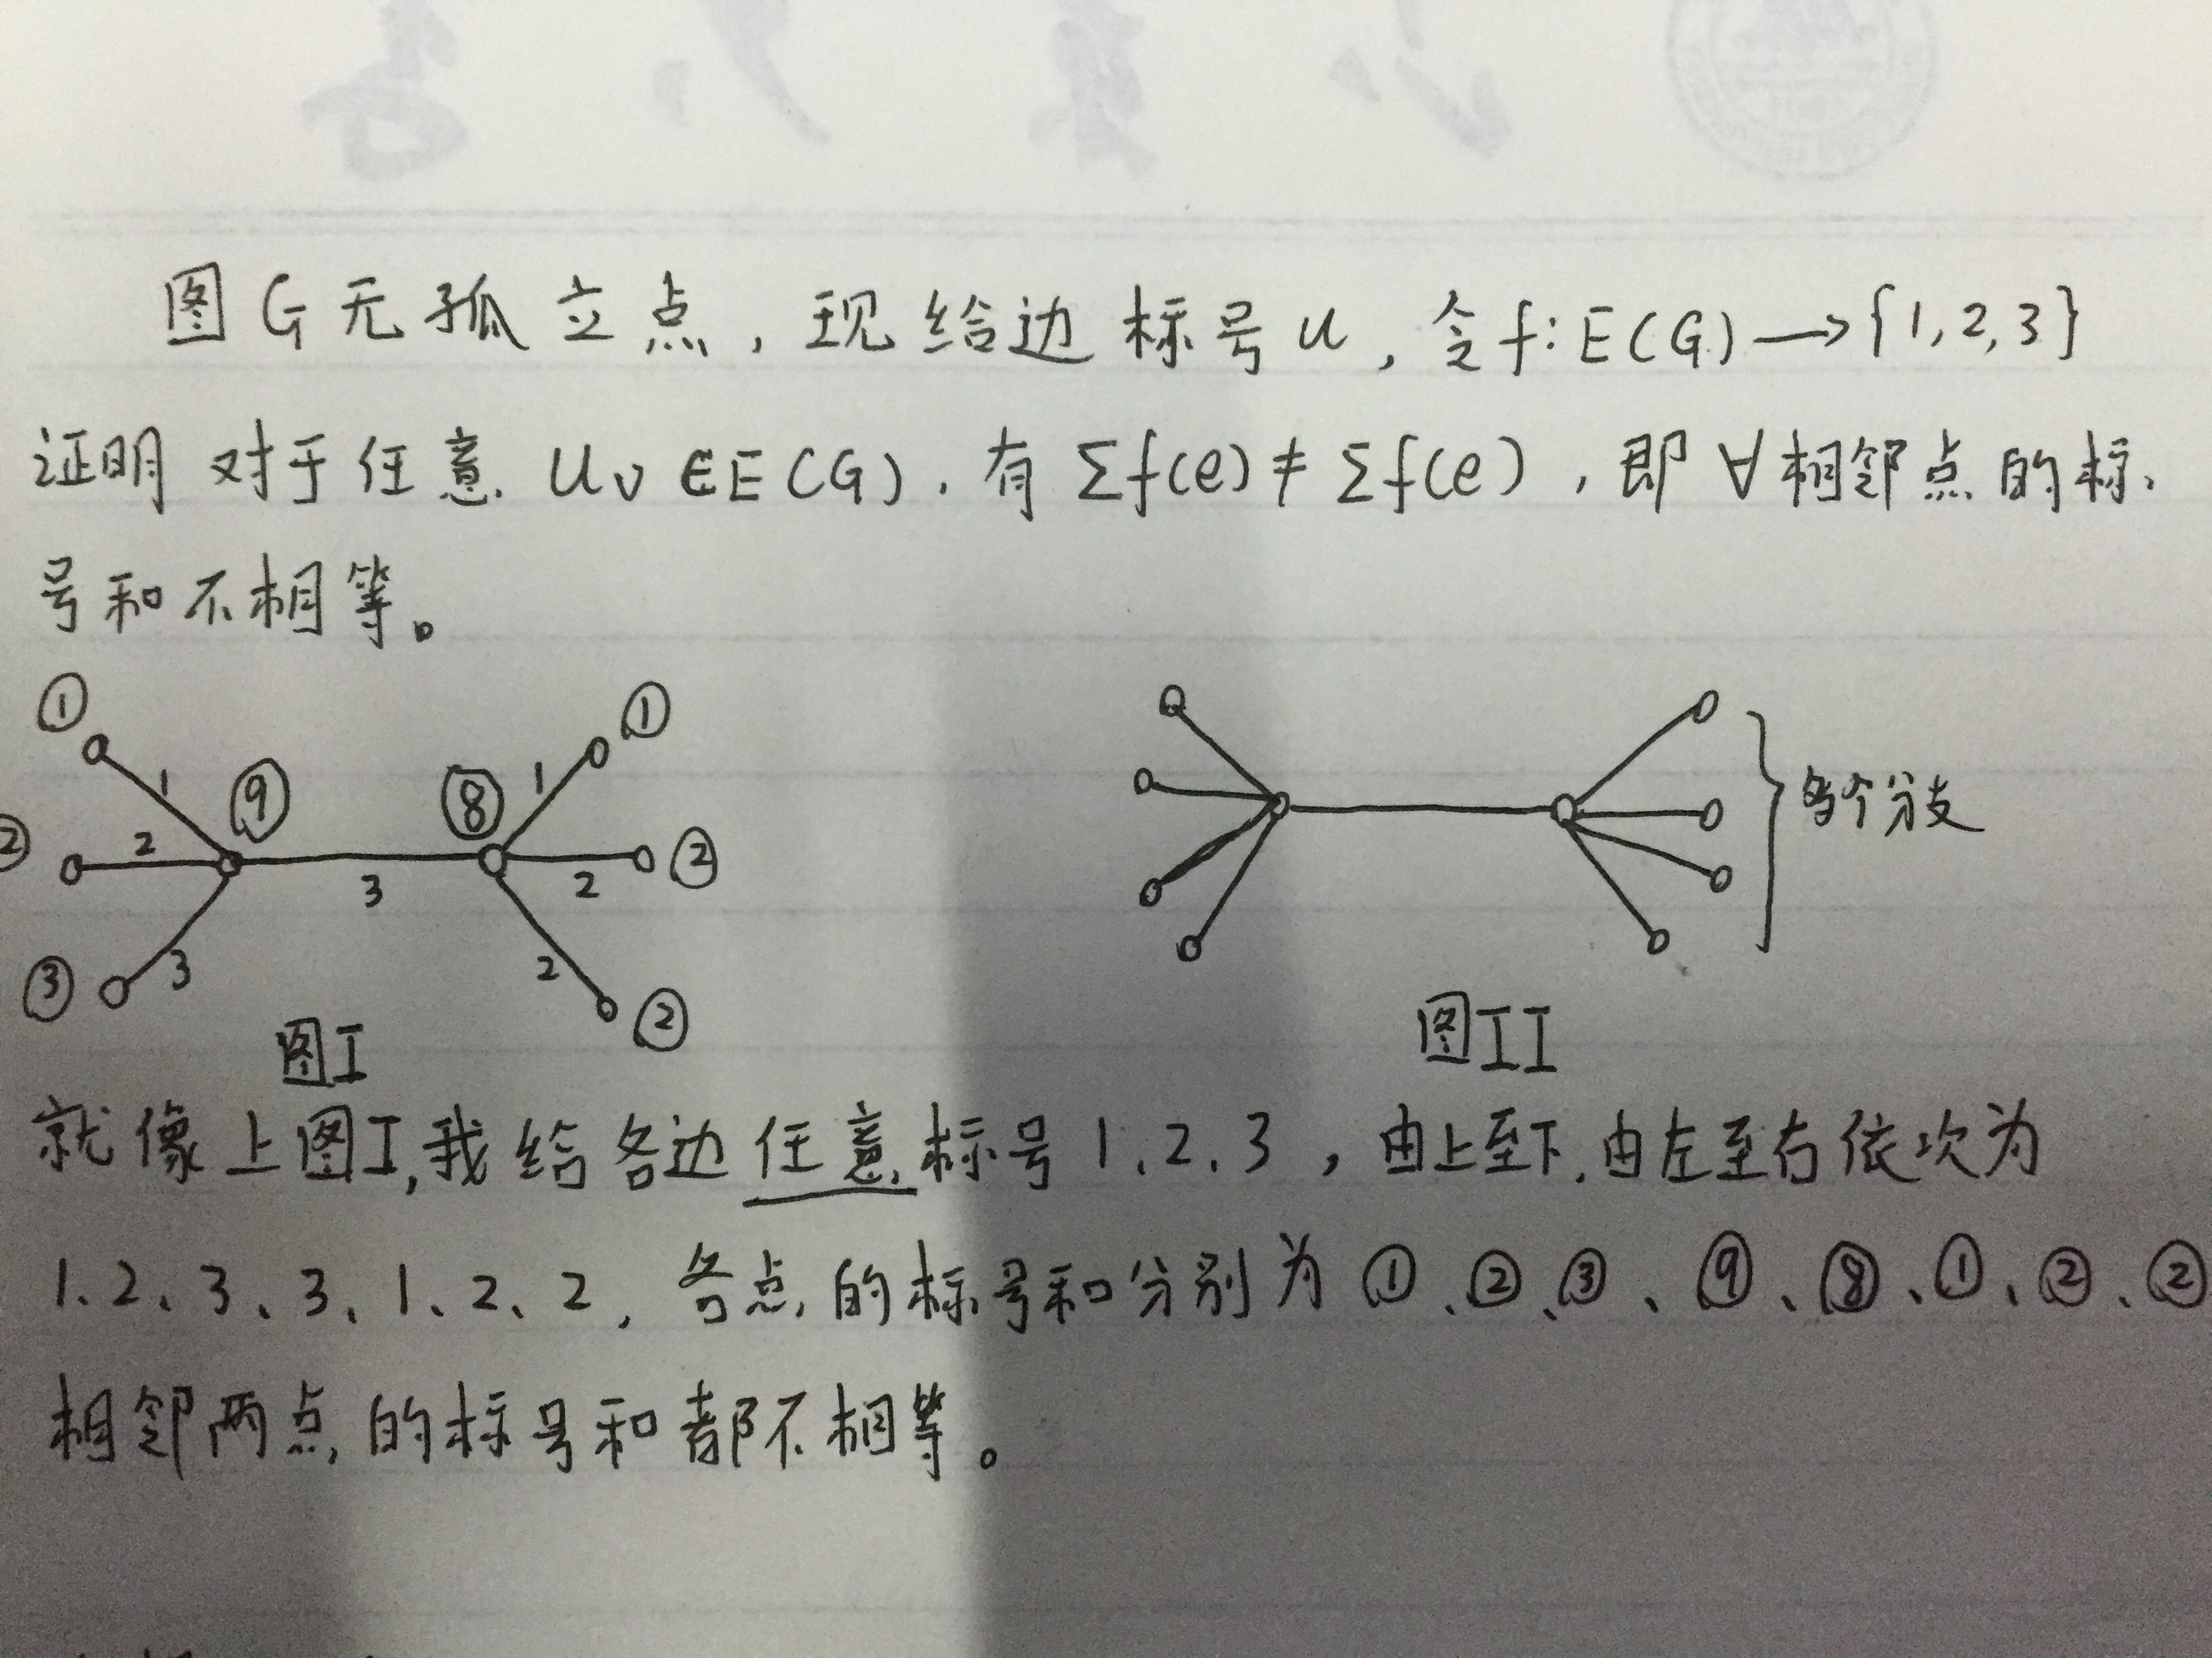 图G无孤立点，现给边标号u，令f:E(G)→{1,2,3}
证明 对于任意 uv∈E(G)，有 Σf(e)≠Σf(e)，即∀相邻点的标
号和不相等。
① 1 ⑨ ⑧ 1 ①
② 2 3 2 ②
③ 3 2 ②
多个分支
图I
图II
就像上图I,我给各边任意标号1、2、3，由上至下,由左至右依次为
1、2、3、3、1、2、2，各点的标号和分别为①、②、③、⑨、⑧、①、②、②
相邻两点的标号和都不相等。